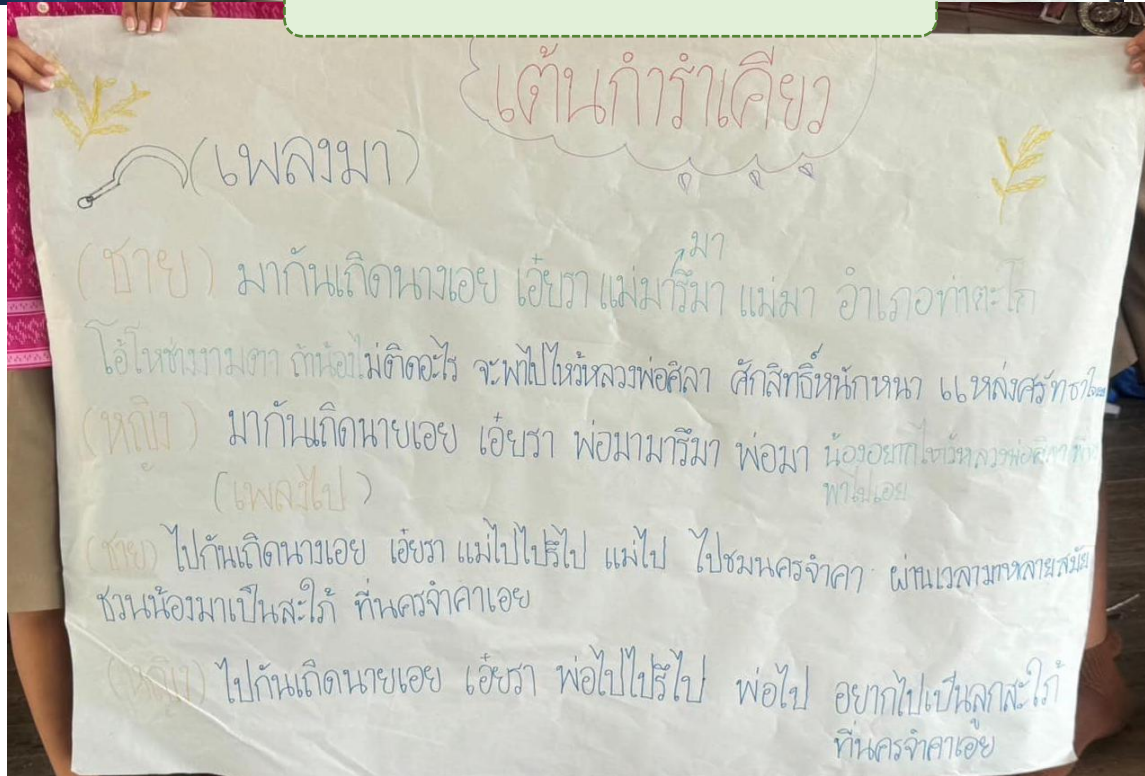 เต้นกำรำเคียว
(เพลงมา)
มา
(ชาย) มากันเถิดนางเอย เอ๋ยรา แม่มารึมา แม่มา อำเภอท่าตะโก
โอ้โหช่างงามตา ถ้าน้องไม่ติดอะไร จะพาไปไหว้หลวงพ่อศิลา ศักสิทธิ์หนักหนา แหล่งศรัทธา
(หญิง) มากันเถิดนายเอย เอ๋ยรา พ่อมามารึมา พ่อมา น้องอยากไหว้หลวงพ่อศิลา
พาไปเอย
(เพลงไป)
(ชาย) ไปกันเถิดนางเอย เอ๋ยรา แม่ไปไปรึไป แม่ไป ไปชมนครจำคา ผ่านเวลามาหลายสมัย
ชวนน้องมาเป็นสะใภ้ ที่นครจำคาเอย
(หญิง) ไปกันเถิดนายเอย เอ๋ยรา พ่อไปไปรึไป พ่อไป อยากไปเป็นลูกสะใภ้
ที่นครจำคาเอย